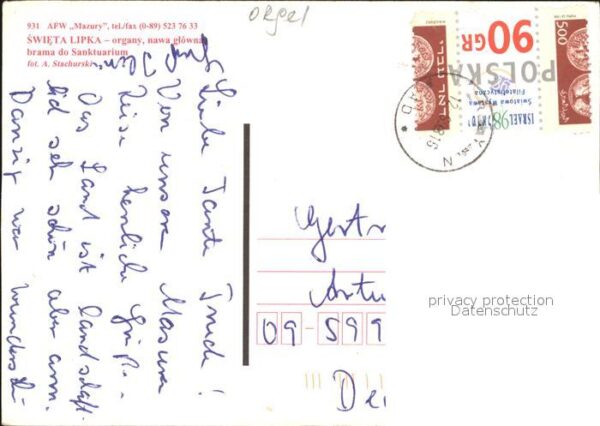 orgel
931 AFW „Mazury”, tel./fax (0-89) 523 76 33
ŚWIĘTA LIPKA – organy, nawa główna
brama do Sanktuarium
fot. A. Stachurski
Liebe Tante Trude!
Von unserer Masuren
Reise herzliche Grüße.
Das Land ist landschaft-
lich sehr schön aber arm.
Danzig war wunderschö
Gertr
Artu
09-599
De
90GR
POLSKA
ISRAEL 98
Światowa Wystawa
Filatelistyczna
500
privacy protection
Datenschutz